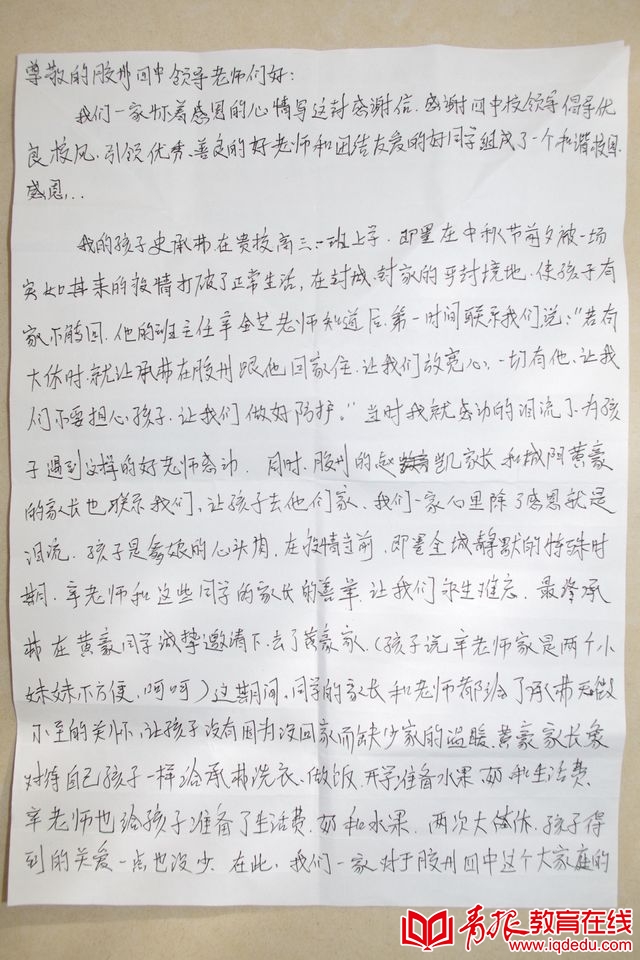 尊敬的胶州四中领导老师们好:
我们一家怀着感恩的心情写这封感谢信.感谢四中校领导倡导优
良校风.引领优秀、善良的好老师和团结友爱的好同学组成了一个和谐校园.
感恩...
我的孩子史承弗.在贵校高三.一班上学.即墨在中秋节前夕被一场
突如其来的疫情打破了正常生活,在封城.封家的平封境地.使孩子有
家不能回.他的班主任辛金芝老师知道后.第一时间联系我们说:"若有
大休时.就让承弗在胶州跟他回家住.让我们放宽心.一切有他.让我
们不要担心孩子.让我们做好防护。"当时我就感动的泪流了.为孩
子遇到这样的好老师感动.同时.胶州的赵凯家长和城阳黄豪
的家长也联系我们,让孩子去他们家、我们一家心里除了感恩就是
泪流.孩子是爹娘的心头肉.在疫情当前.即墨全城静默的特殊时
期.辛老师和这些同学的家长的善举.让我们永生难忘.最终承
弗在黄豪同学诚挚邀请下.去了黄豪家.(孩子说辛老师家是两个小
妹妹不方便.呵呵)这期间.同学的家长和老师都给了承弗无微
不至的关怀.让孩子没有因为没回家而缺少家的温暖.黄豪家长象
对待自己孩子一样给承弗洗衣.做饭.开学准备水果.奶和生活费.
辛老师也给孩子准备了生活费.奶和水果.两次大休.孩子得
到的关爱一点也没少.在此.我们一家对于胶州四中这个大家庭的
青报教育在线
www.iqdedu.com